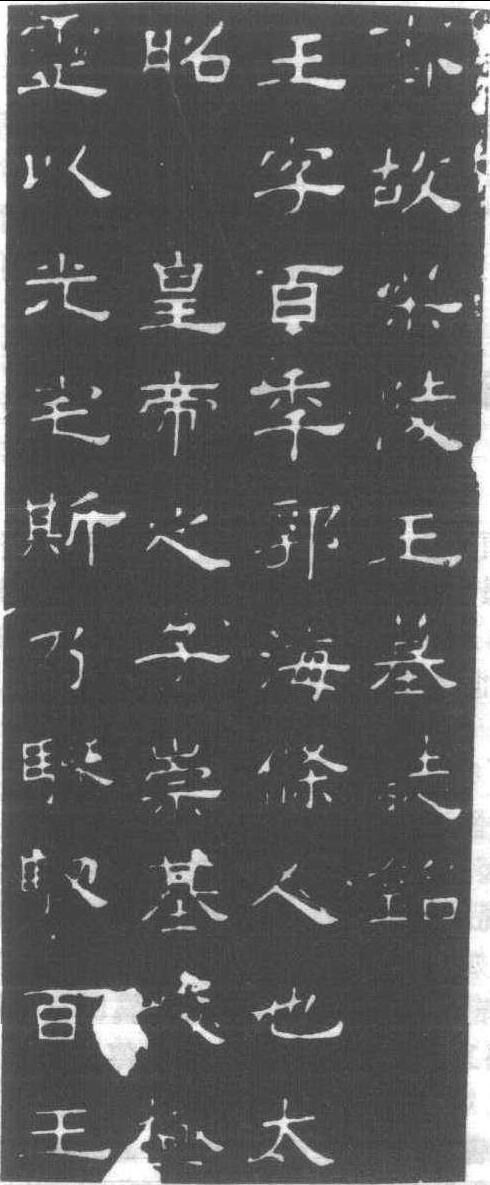 故樂陵王墓誌銘
王字百季郣海條人也太
昭皇帝之子崇基峻極
以光宅斯乃馭百王